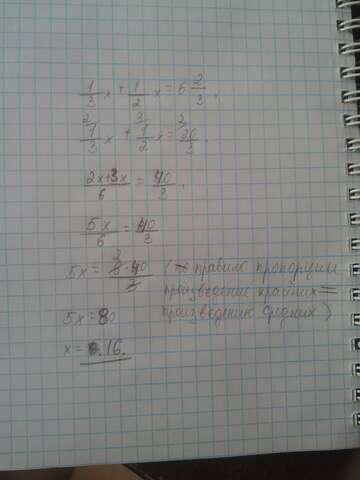 1/3 x + 1/2 x = 6 2/3,
2 1/3 x + 3 1/2 x = 2 20/3,
2x+3x/6 = 40/3,
5x/6 = 40/3
5x = 6·40/3 (по правило пропорции
произведение крайних =
5x = 80 произведению средних)
x = 16.